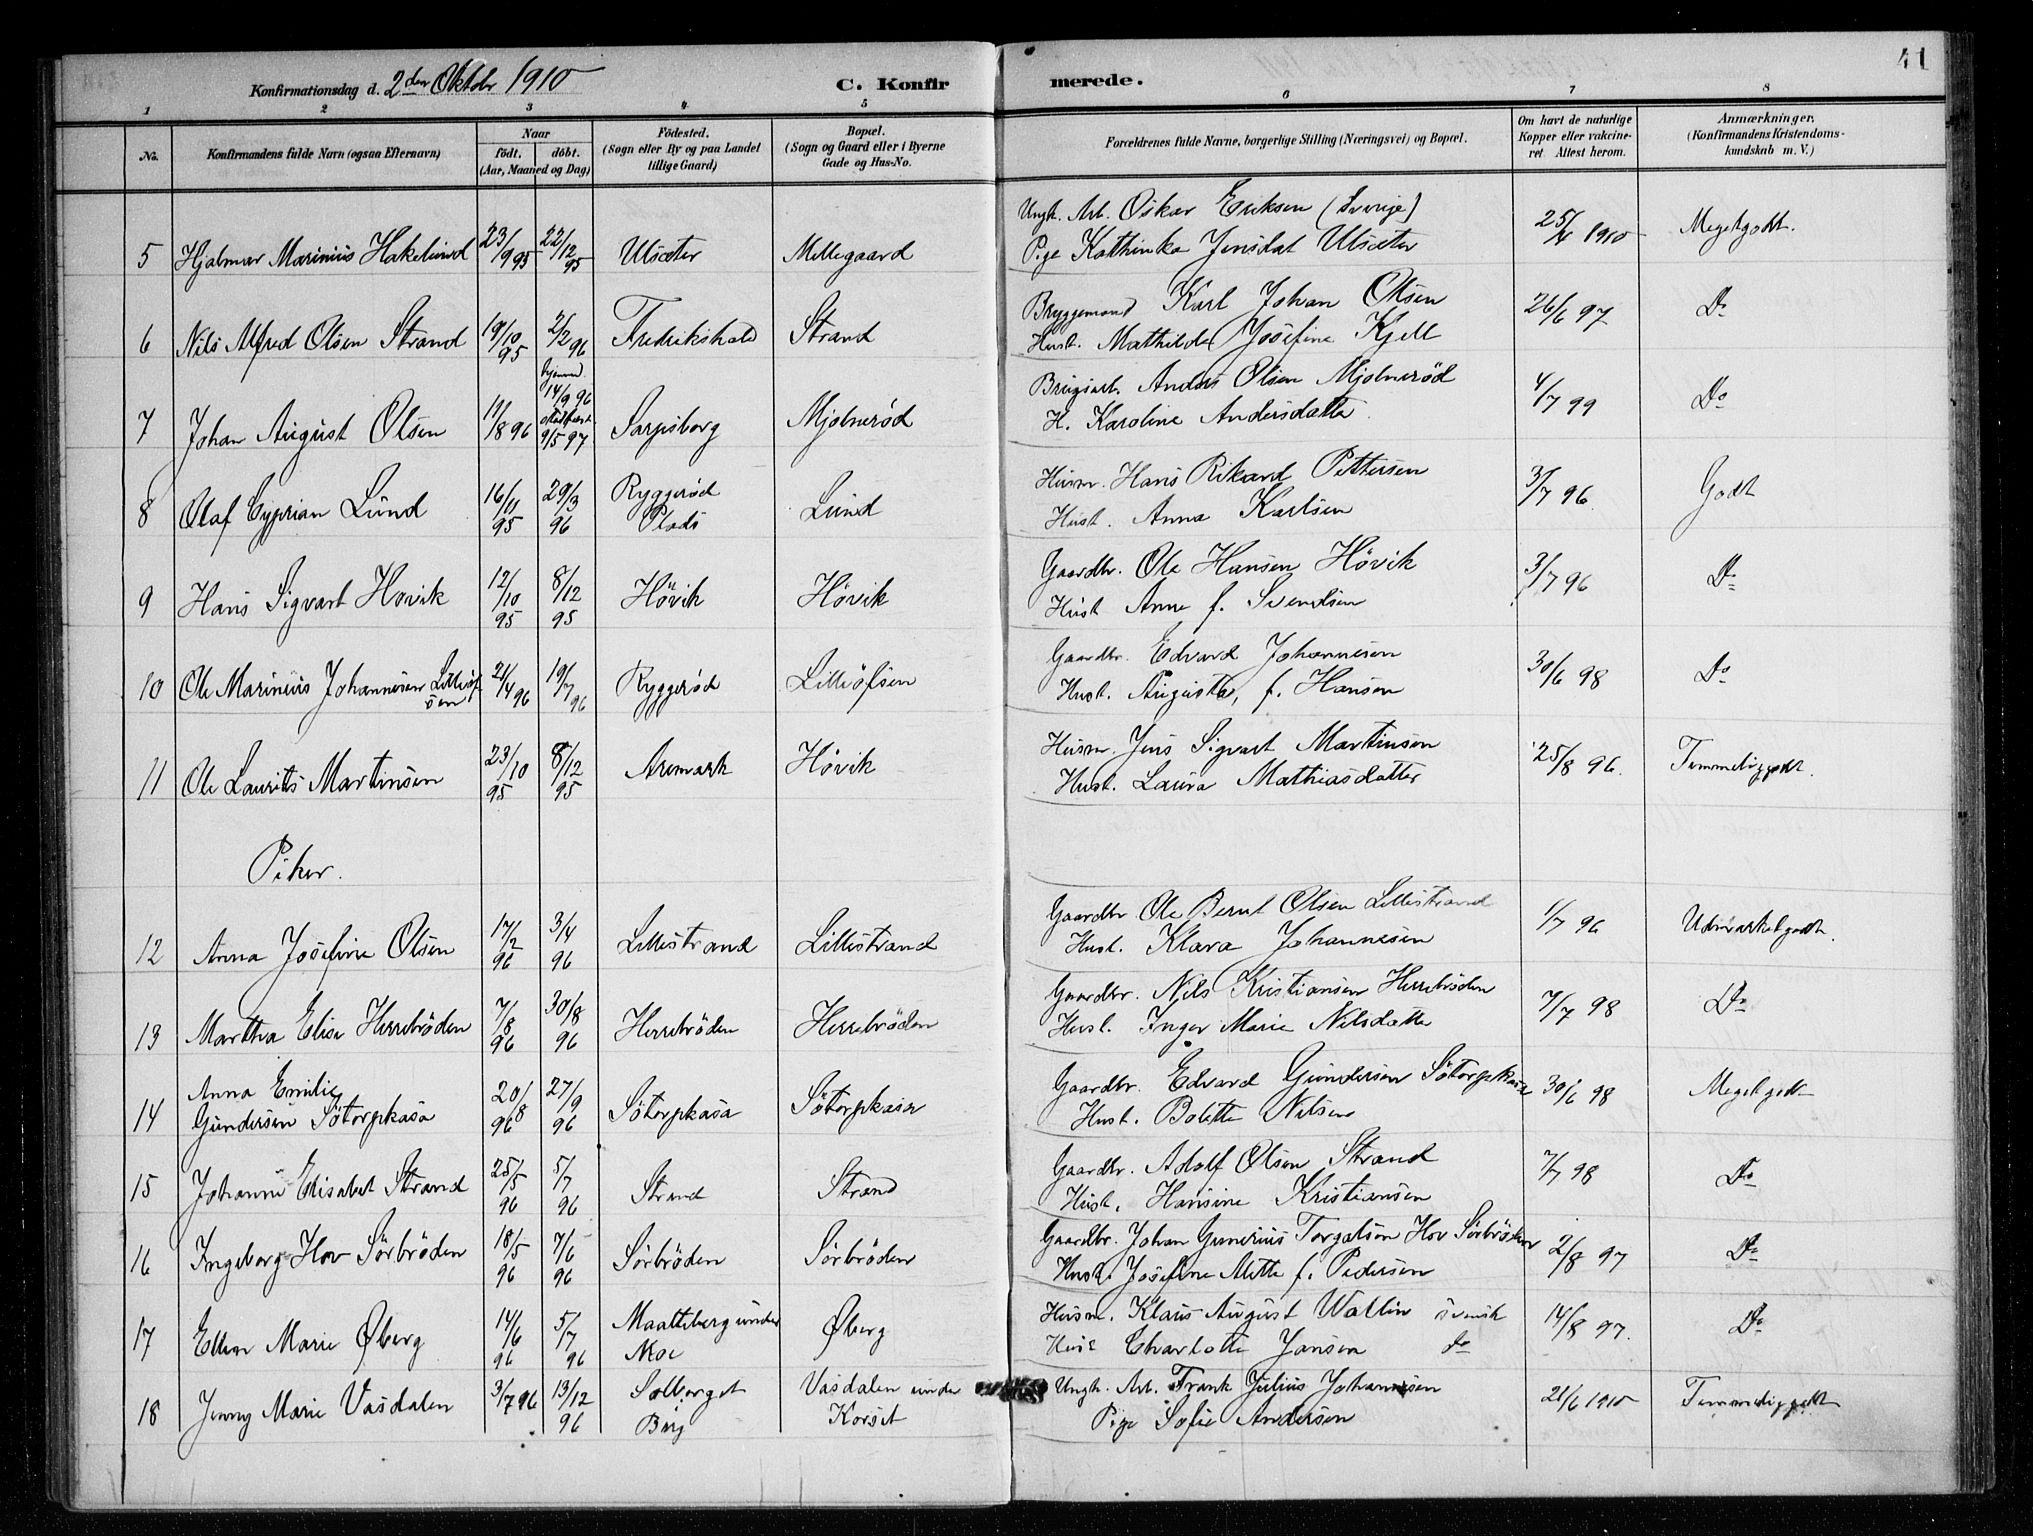 41
Konfirmationsdag d. 2den Oktobr 1910
C. Konfirmerede.
1 2 3 4 5 6 7 8
No. Konfirmandens fulde Navn (ogsaa Efternavn) Naar födt. döbt. (Aar, Maaned og Dag) Födested. (Sogn eller By og paa Landet tillige Gaard) Bopæl. (Sogn og Gaard eller i Byerne Gade og Hus-No. Forældrenes fulde Navne, borgerlige Stilling (Næringsvei) og Bopæl. Om havt de naturlige Kopper eller vakcineret Attest herom. Anmærkninger. (Konfirmandens Kristendomskundskab m. V.)
5 Hjalmar Marinius Hakelund 23/9 95 22/12 95 Ulsæter Mellegaard Ungk. Arb. Oskar Eriksen (Sverige) 25/4 1910 Megetgodt.
Pige Kathinka Jensdat Ulsæter
6 Nils Alfred Olsen Strand 19/10 95 2/2 96 Fredrikshald Strand Bryggemand Karl Johan Olsen 26/6 97 Do
Hust. Mathilde Josefine Kjell
7 Johan August Olsen 11/8 96 hjemmed. 14/9 96 stadfæst 9/5 97 Sarpsborg Mjølnerød Brugsarb. Anders Olsen Mjølnerød 4/7 99 Do
H. Karoline Andersdatter
8 Olaf Cyprian Lund 16/11 95 29/3 96 Ryggerød Plads Lund Husm. Hans Rikard Pettersen 3/7 96 Godt
Hust. Anna Karlsen
9 Hans Sigvart Høvik 12/10 95 8/12 95 Høvik Høvik Gaardbr. Ole Hansen Høvik 3/7 96 Do
Hust Anne f. Svendsen
10 Ole Marinius Johannesen Lilleöfsen 21/4 96 19/7 96 Ryggerød Lilleöfsen Gaardbr. Edvard Johannesen 30/6 98 Do
Hust. Augusta, f. Hansen
11 Ole Laurits Martinsen 23/10 95 8/12 95 Aremark Høvik Husm. Jens Sigvart Martinsen 25/8 96. Temmeliggodt.
Hust. Laura Mathiasdatter
Piker.
12 Anna Josefine Olsen 17/2 96 3/4 96 Lillestrand Lillestrand Gaardbr Ole Bernt Olsen Lillestrand 1/7 96 Udmærketgodt.
Hust. Klara Johannesen
13 Martha Elise Herrebröden 7/8 96 30/8 96 Herrebröden Herrebröden Gaardbr. Nils Kristiansen Herrebröden 7/7 98 Do
Hust. Inger Marie Nilsdatter
14 Anna Emilie Gundersen Sötorpkasa 20/8 96 27/9 96 Sötorpkasa Sötorpkasa Gaardbr. Edvard Gundersen Sötorpkasa 30/6 98 Megetgodt
Hust. Bolette Nilsen
15 Johanne Elisabet Strand 25/5 96 5/7 96 Strand Strand Gaardbr. Adolf Olsen Strand 7/7 98 Do
Hust. Hansine Kristiansen
16 Ingeborg Hov Sörbröden 18/5 96 7/6 96 Sörbröden Sörbröden Gaardbr. Johan Gunerius Torgalsen Hov Sörbröden 2/8 97 Do
Hust. Josefine Mette f. Pedersen
17 Ellen Marie Øberg 14/6 96 5/7 96 Maatteberg under Øberg Husm. Klaus August Wallin svensk 14/8 97. Do
Hust Charlotte Jansen do
18 Jenny Marie Vasdalen 3/7 96 13/12 96 Solberget Berg Vasdalen under Korset Ungk. Arb. Frank Julius Johannesen 21/6 1910 Temmeliggodt
Pige Sofie Andersen